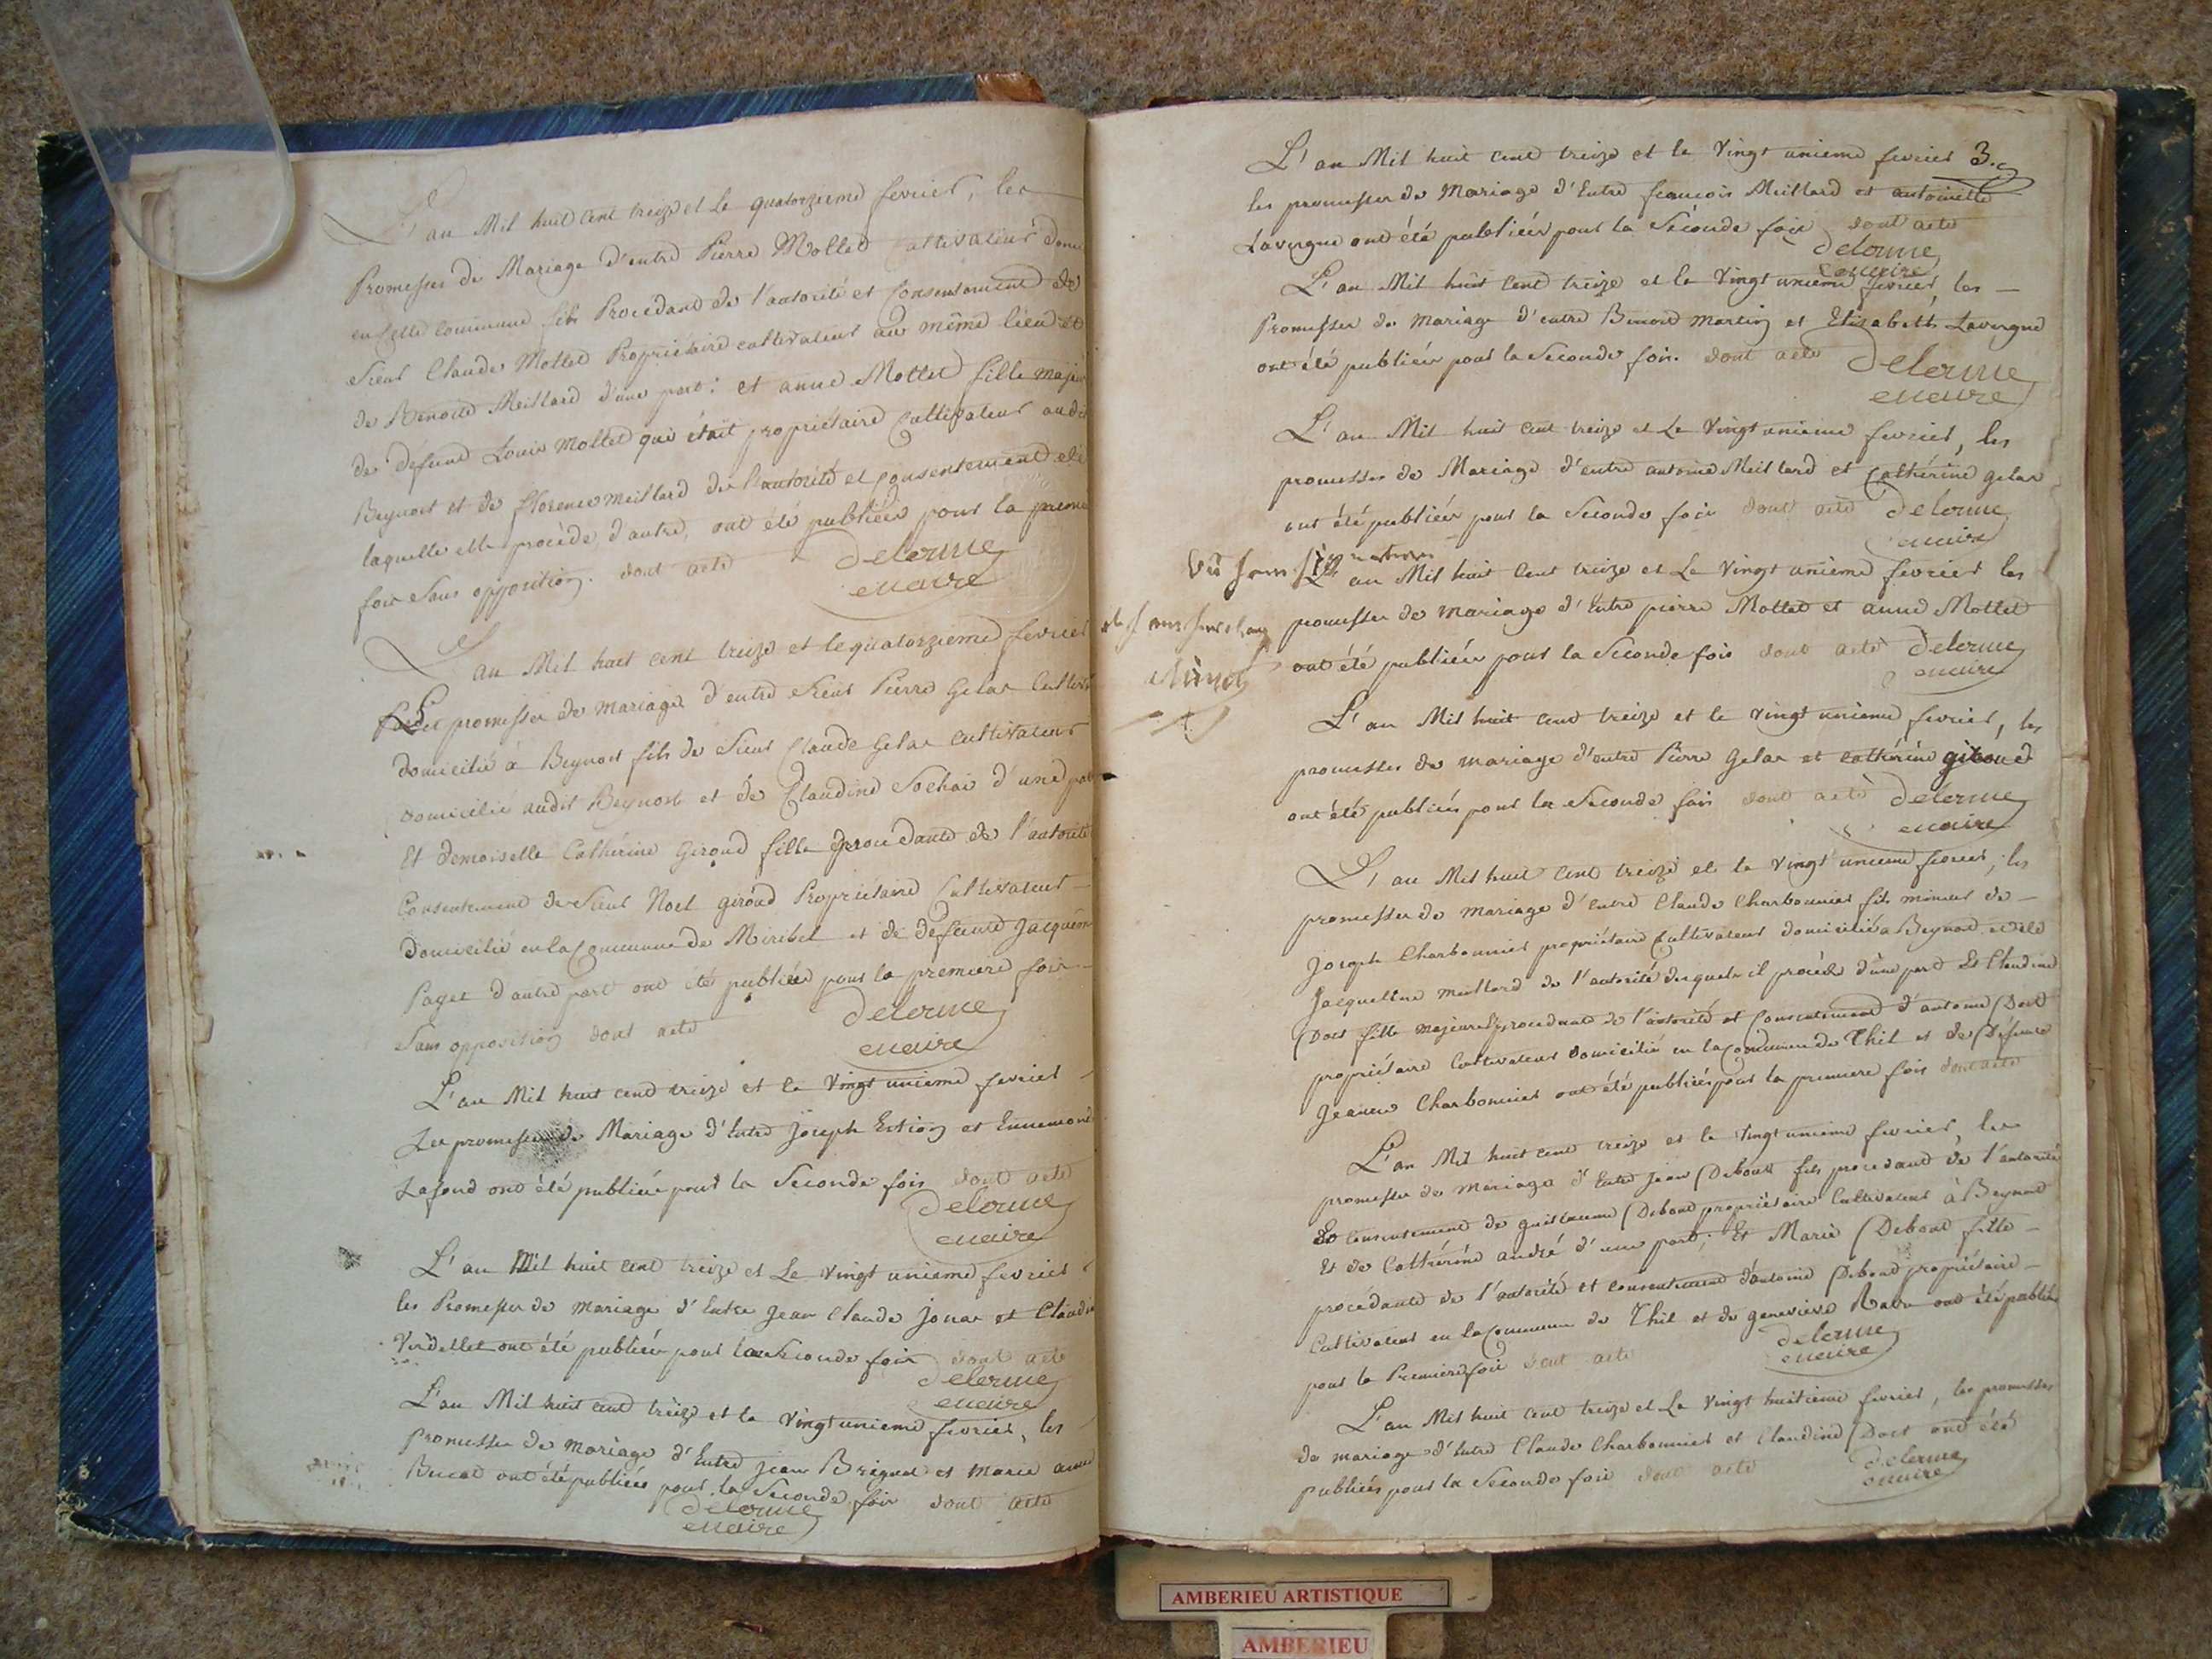 L'an Mil huit cent treize et Le quatorzieme fevrier, les
Promesses de Mariage d'entre Pierre Mollet Cultivateur
en cette commune fils Procedant de l'autorité et Consentement de
Sieur Claude Mottet Propriétaire cultivateur au même lieu et
de Benoite Meillard d'une part: et anne Mottet fille
de défunt Louis Mottet qui était propriétaire Cultivateur audit
Beynost et de florence meillard de l'autorité et consentement de
laquelle elle procède, d'autre, ont été publiées pour la
fois Sans opposition. dont acte delorme
maire
L'an Mil huit cent treize et le quatorzieme fevrier
Les promesses de mariage d'entre Sieur Pierre Gelas
domicilié à Beynost fils de Sieur Claude Gelas cultivateur
domicilié audit Beynost et de Claudine Sochai d'une part
Et demoiselle Cathérine Giroud fille procedante de l'autorité
Consentement de Sieur Noel giroud Propriétaire Cultivateur
domicilié en la Commune de Miribel et de défeunte
Paget d'autre part ont été publiées pour la premiere fois
Sans opposition dont acte delorme
maire
L'an Mil huit cent treize et le Vingt unieme fevrier
Les promesses de Mariage d'Entre Joseph Estion et Ennemonde
Lafond ont été publiées pour la Seconde fois dont acte
delorme
maire
L'an Mil huit cent treize et Le Vingt unieme fevrier
les Promesses de Mariage d'Entre Jean Claude Jonas et
Verdellet ont été publiées pour la Seconde fois dont acte
delorme
maire
L'an Mil huit cent treize et le Vingt unieme fevrier, les
promesses de mariage d'Entre Jean et Marie anne
ont été publiées pour la Seconde fois dont acte
delorme
maire
L'an Mil huit cent treize et le Vingt unieme fevrier 3.
les promesses de Mariage d'Entre françois Meillard et antoinette
Lavergne ont été publiées pour la Séconde fois dont acte
delorme
maire
L'an Mil huit cent treize et le Vingt unieme fevrier, les
Promesses de Mariage d'entre Benoit Martin et Elizabeth Lavergne
ont été publiées pour la Seconde fois. dont acte delorme
maire
L'an Mil huit cent treize et Le Vingt unieme fevrier, les
promesses de Mariage d'entre antoine Meillard et Cathérine gelas
ont été publiées pour la Seconde fois dont acte delorme
maire
Vû
L'an Mil huit cent treize et Le Vingt unieme fevrier les
promesses de Mariage d'Entre pierre Mottet et anne Mottet
ont été publiées pour la Seconde fois dont acte delorme
maire
L'an Mil huit cent treize et le Vingt unieme fevrier, les
promesses de mariage d'entre Pierre Gelas et cathérine giroud
ont été publiées pour la Seconde fois dont acte delorme
maire
L'an Mil huit cent treize et le Vingt unieme fevrier, les
promesses de mariage d'entre Claude Charbonnier fils mineur de
Joseph Charbonnier propriétaire Cultivateur domicilié à Beynost et de
Jacqueline meillard de l'autorité desquels il procède d'une part Et Claudine
Dost fille majeure procedante de l'autorité et Consentement d'antoine Dost
propriétaire Cultivateur domicilié en la Commune de Thil et de Défunte
Jeanne Charbonnier ont été publiées pour la premiere fois dont acte
L'an Mil huit cent treize et le Vingt unieme fevrier, les
promesses de Mariage d'Entre Jean Debout fils procedant de l'autorité
Et Consentement de guillaume Debout propriétaire Cultivateur à Beynost
Et de Cathérine andré d'une part; Et Marie Debout fille
procédante de l'autorité et consentement d'antoine Debout propriétaire
Cultivateur en la Commune de Thil et de geneviève ont été publiées
pour la Premiere fois dont acte delorme
maire
L'an Mil huit cent treize et Le Vingt huitieme fevrier, les promesses
de mariage d'Entre Claude Charbonnier et Claudine Dost ont été
publiées pour la Seconde fois dont acte delorme
maire
AMBERIEU ARTISTIQUE
AMBERIEU